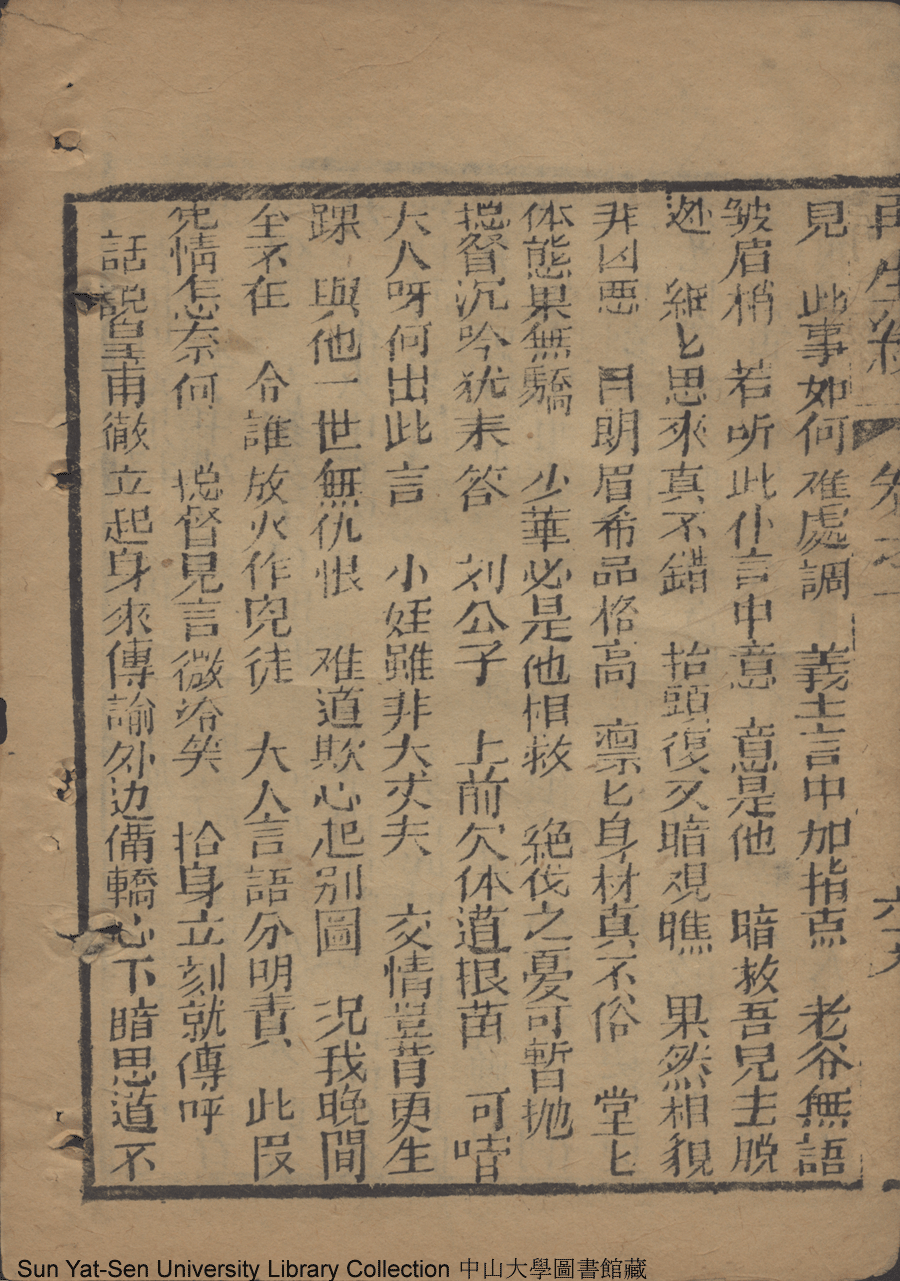 再生緣 卷之一 六十九
見 此事如何难處調 義士言中加指点 老谷無語
皱眉梢 若听此仆言中意 意是他 暗救吾兄圭脱
迯 細匕思來真不錯 抬頭復又暗观瞧 果然相貌
非凶悪 目朗眉希品格高 凛匕身材真不俗 堂匕
体態果無驕 少華必是他相救 絕伐之憂可暫抛
揔督沉吟犹未答 刘公子 上前欠体道根苗 可惜
大人呀何出此言 小姪雖非大丈夫 交情豈昔更生
踝 與他一世無仇恨 难道欺心起别圖 况我晚間
全不在 令誰放火作兇徒 大人言語分明責 此叚
寃情怎奈何 揔督見言微冷笑 抬身立刻就傳呼
話說皇甫徹立起身來傳諭外边俻轎心下暗思道不
Sun Yat-Sen University Library Collection 中山大學圖書館藏